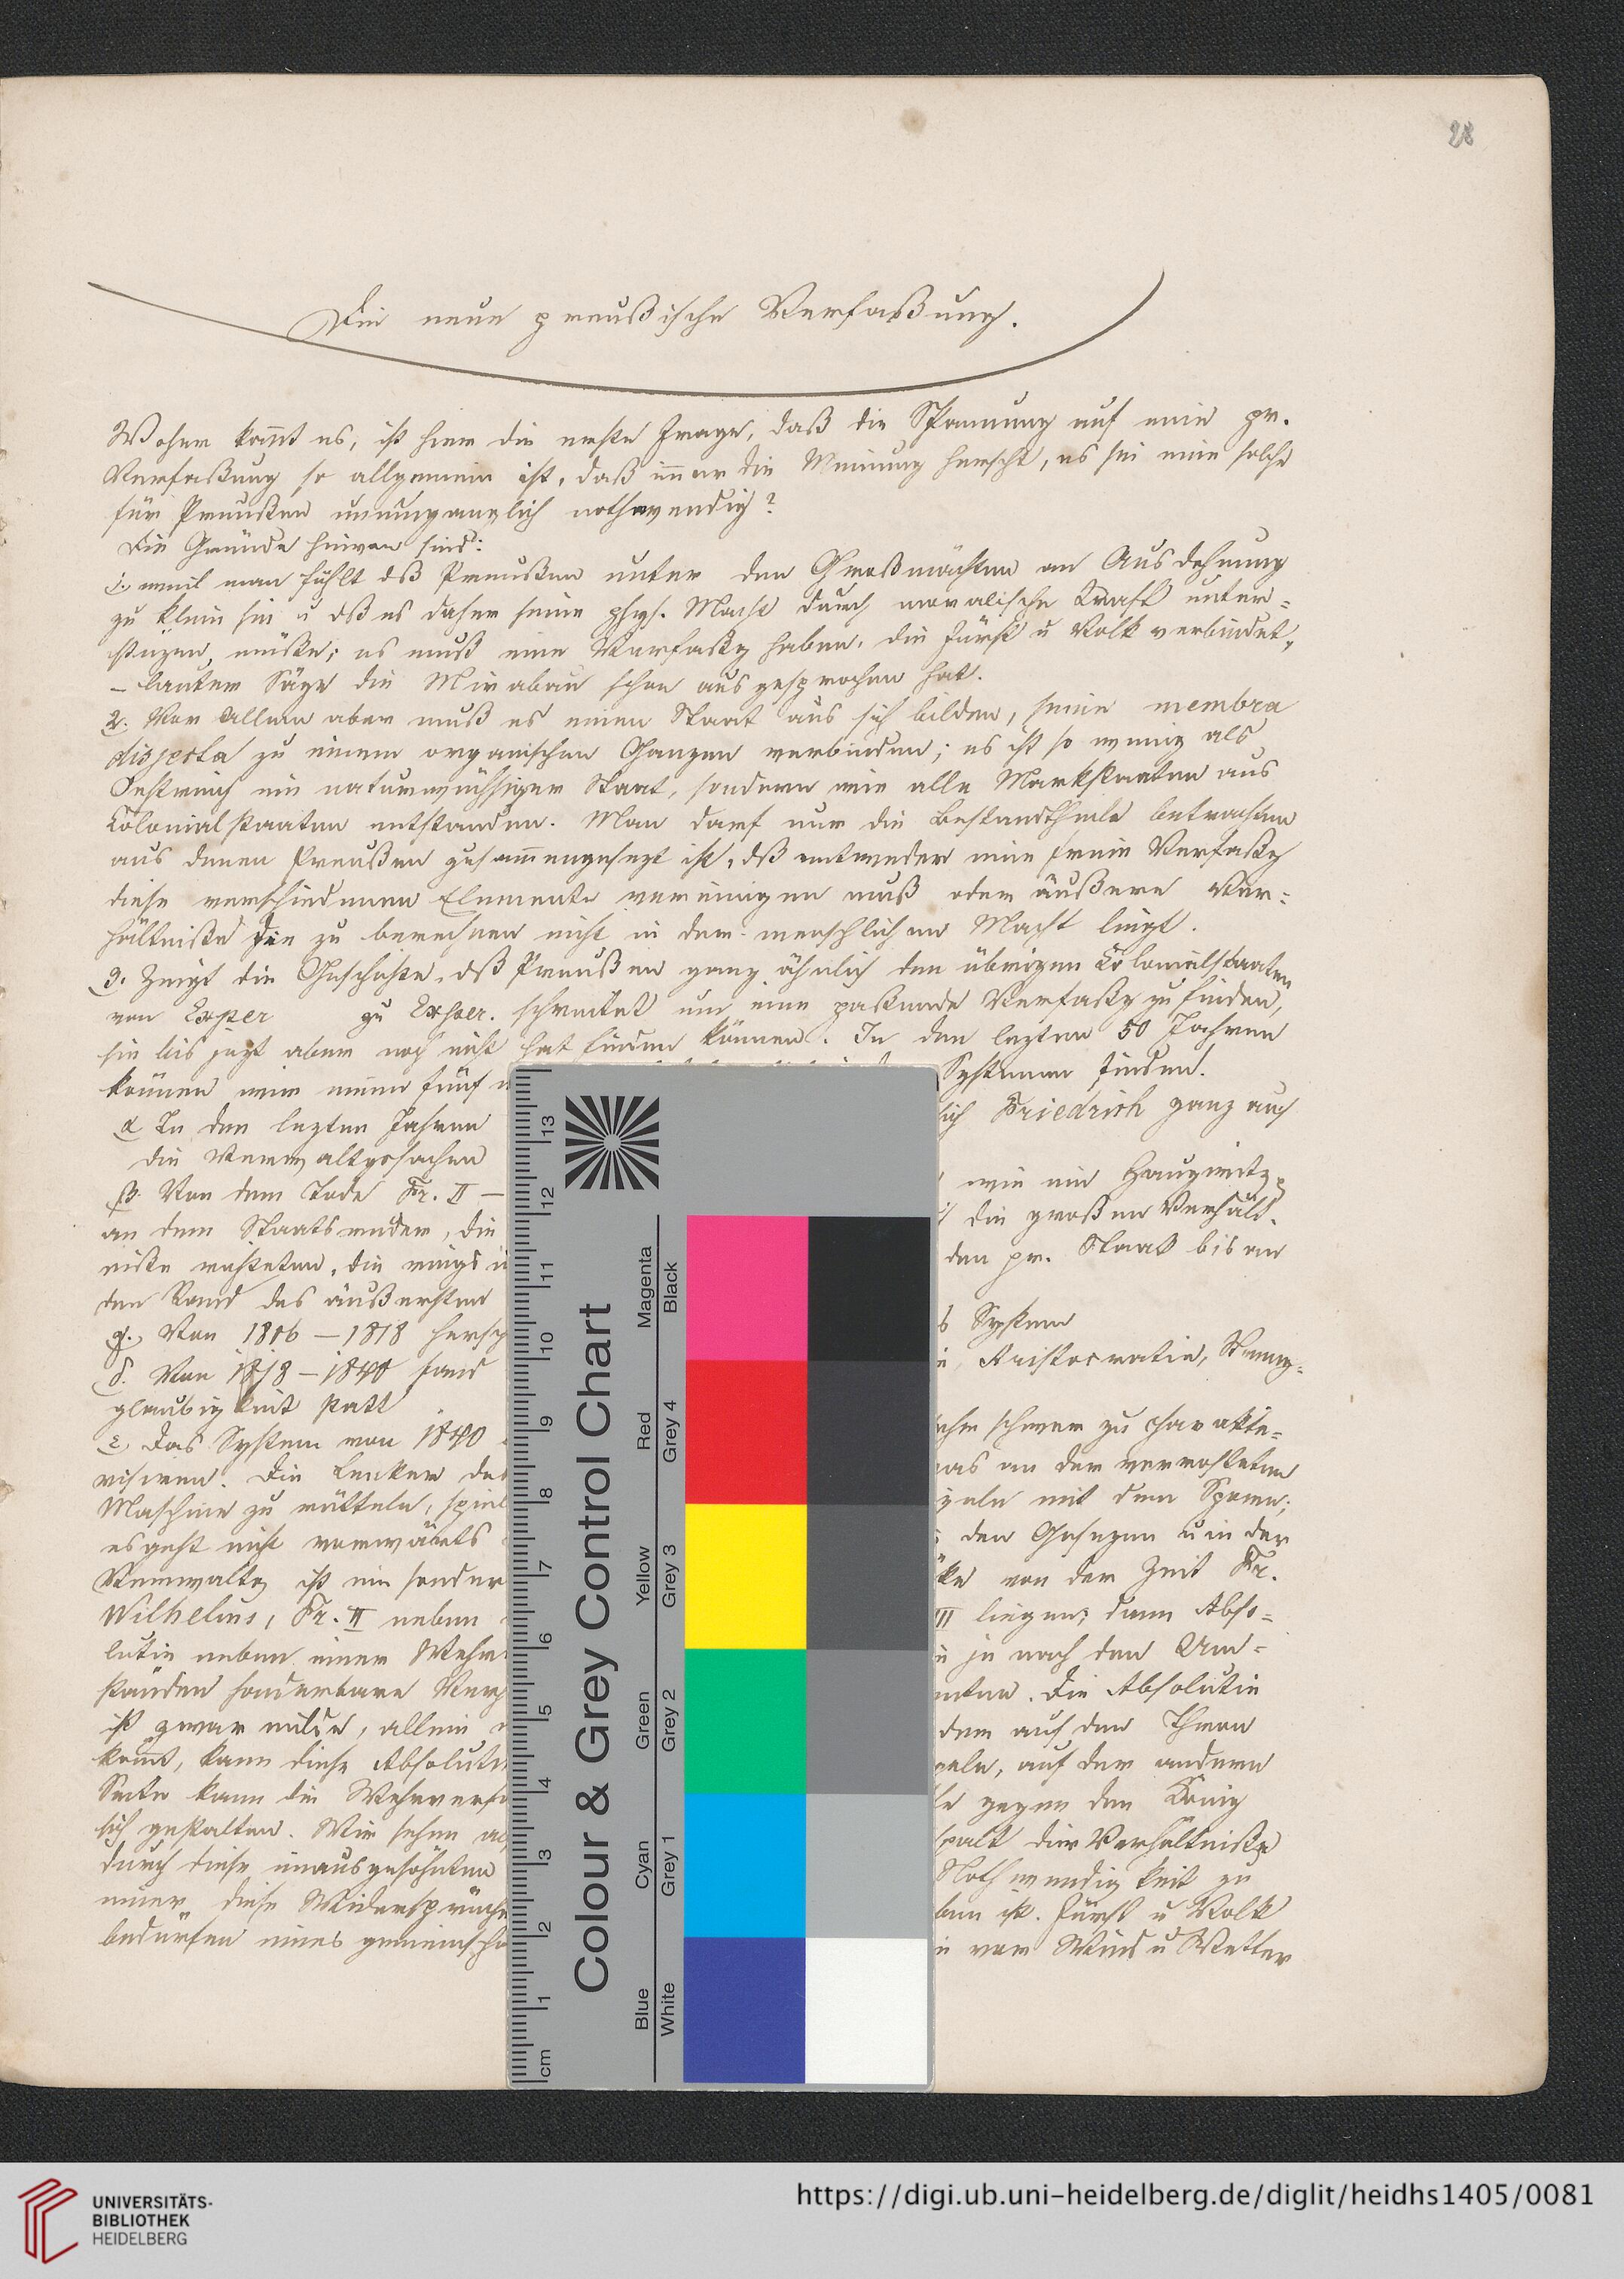 28
Die neue preußische Verfaßung.
Woher kom̄t es, ist hier die erste Frage, daß die Spannung auf eine pr.
Verfaßung so allgemein ist, daß im̄er die Meinung herscht, es sei eine solche
für Preußen unumgänglich nothwendig?
Die Gründe hievon sind:
1. weil man fühlt dß Preußen unter den Großmächten an Ausdehnung
zu klein sei u dß es daher seine phys. Macht durch moralische Kraft unter=
stüzen müße; es muß eine Verfaßg haben, die Fürst u Volk verbindet,
– lauter Säze die Mirabau schon ausgesprochen hat.
2. Vor Allem aber muß es einen Staat aus sich bilden, seine membra
disjecta zu einem organischen Ganzen verbinden; es ist so wenig als
Oestreich ein naturwüchsiger Staat, sondern wie alle Markstaaten aus
Colonialstaaten entstanden. Man darf nur die Bestandtheile betrachten
aus denen Preußen zusam̄engesezt ist, dß entweder eine freie Verfaßg
diese verschiedenen Elemente vereinigen muß oder äußere Ver=
hältniße die zu berechnen nicht in der menschlichen Macht liegt.
3. Zeigt die Geschichte, dß Preußen ganz ähnlich den übrigen Colonialstaaten
von Exper zu Exper. schreitet um eine paßende Verfaßg zu finden,
sie bis jezt aber noch nicht hat finden können. In den lezten 50 Jahren
können wir einen fünf Systemen finden.
α In den lezten Jahren sich Friedrich ganz auf
die Verwaltgssachen
β. Von dem Tode Fr. II – wie ein Haugwitz
an dem Staatsruder, die die großen Verhält-
niße den pr. Staat bis an
den Rand des äußersten
γ. Von 1806 – 1818 System
δ. Von 1818 – 1840 fand Aristocratie, Streng=
glaubigkeit statt
ε. Das System von 1840 schwer zu charakte=
risiren. Die Lenker des an der verrosteten
Maschine zu rütteln, mit dem Sporn;
es geht nicht vorwärts den Gesezen u in der
Verwaltg ist ein sonder von der Zeit Fr.
Wilhelms, Fr. II neben III liegen; denn Abso=
lutie neben einer je nach den Um=
ständen sonderbare Die Absolutie
ist zwar milde, allein dem auf den Thron
kom̄t, kann diese auf der anderen
Seite kann die gegen den König
sich gestalten. Wir sehen der Verhältniße
durch diese unausgesöhnten Nothwendigkeit zu
einer diese Widersprüche ist. Fürst u Volk
bedürfen eines vor Wind u Wetter
Colour & Grey Control Chart
Magenta
Black
Red
Grey 4
Yellow
Grey 3
Green
Grey 2
Cyan
Grey 1
Blue
White
13
12
11
10
9
8
7
6
5
4
3
2
1
cm
UNIVERSITÄTS-
BIBLIOTHEK
HEIDELBERG
https://digi.ub.uni-heidelberg.de/diglit/heidhs1405/0081